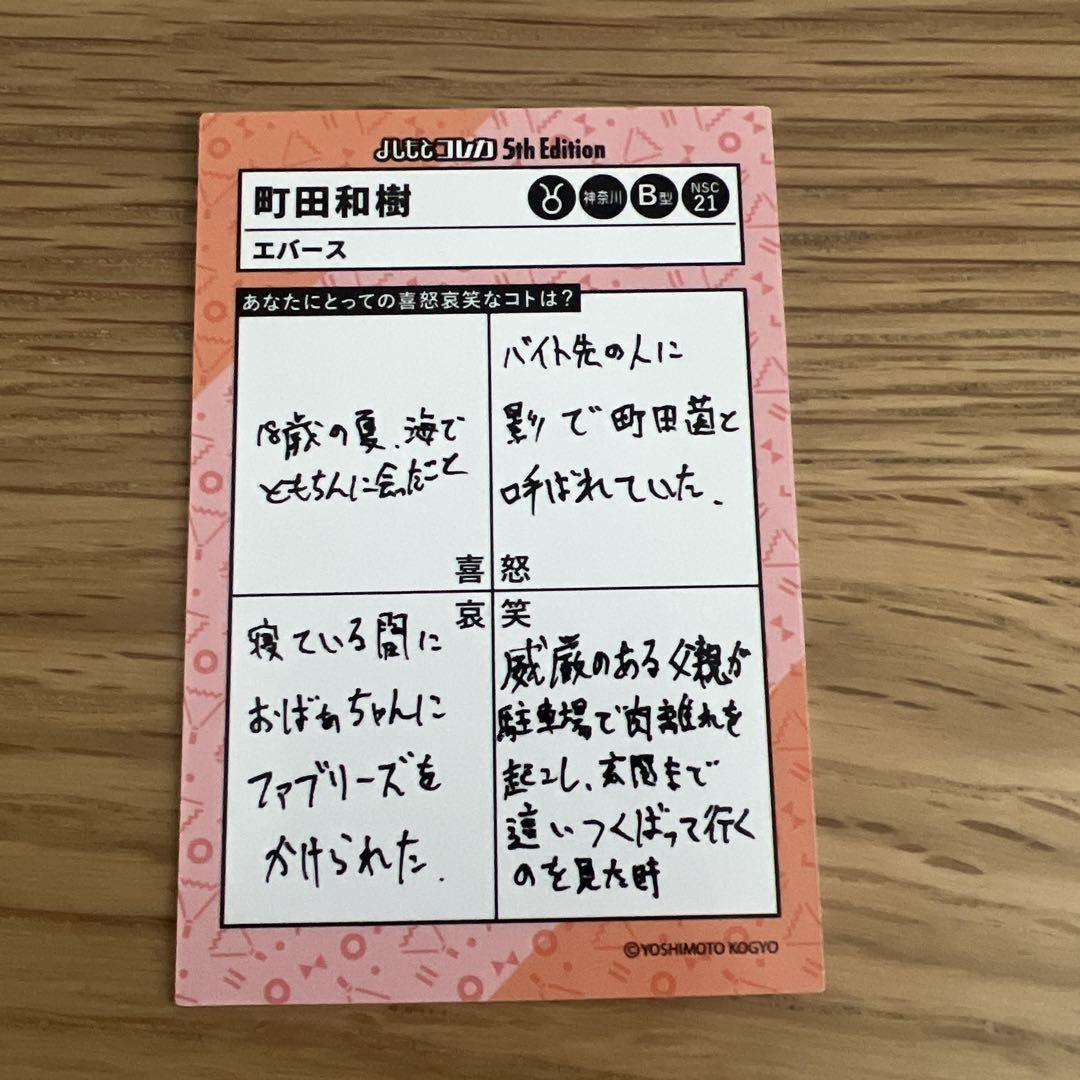 よしもとコレカ 5th Edition
町田和樹
♉ 神奈川 B型 NSC 21
エバース
あなたにとっての喜怒哀笑なコトは？
18歳の夏、海で
ともちんに会ったこと
喜
バイト先の人に
影で町田菌と
呼ばれていた、
怒
哀
寝ている間に
おばあちゃんに
ファブリーズを
かけられた.
笑
威厳のある父親が
駐車場で肉離れを
起こし、玄関まで
這いつくばって行く
のを見た時
©YOSHIMOTO KOGYO